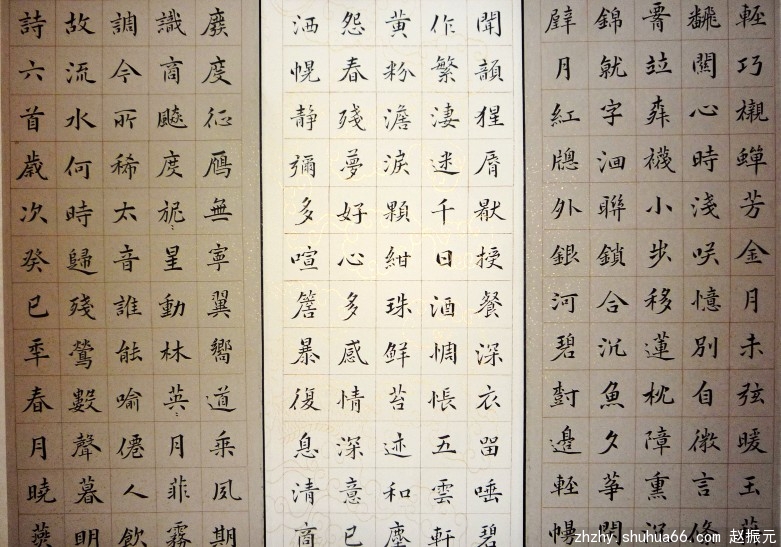 輕巧襯蟬芳金月未弦暖玉
飜關心時淺咲憶別自微言脩
竝襪小步移蓮枕障熏沉
錦就字洄聯鎖合沉魚夕篝開
壁月紅牎外銀河碧對邊輕幔
聞韻猩脣猒授餐深衣畱唾碧
作繁淒迷千日酒惆悵五雲軒
黃粉澹淚顆紺珠鮮苔迹和塵
怨春殘夢好心多感情深意已
洒幌靜彌多喧簷暴復息清高
廢度征鴈無寧翼嚮道乘夙期
識高飈度旎星動林英月菲霧
調今所稀太音誰能喻僊人飲
故流水何時歸殘鶯數聲暮明
詩六首歲次癸巳秊春月曉
zhzhy.shuhua66.com 赵振元